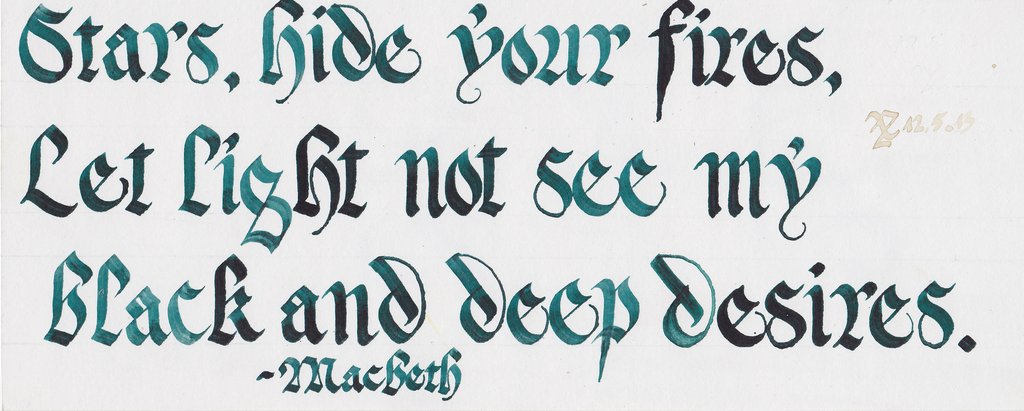 Stars, hide your fires,
Let light not see my
black and deep desires.
-Macbeth
12.5.13